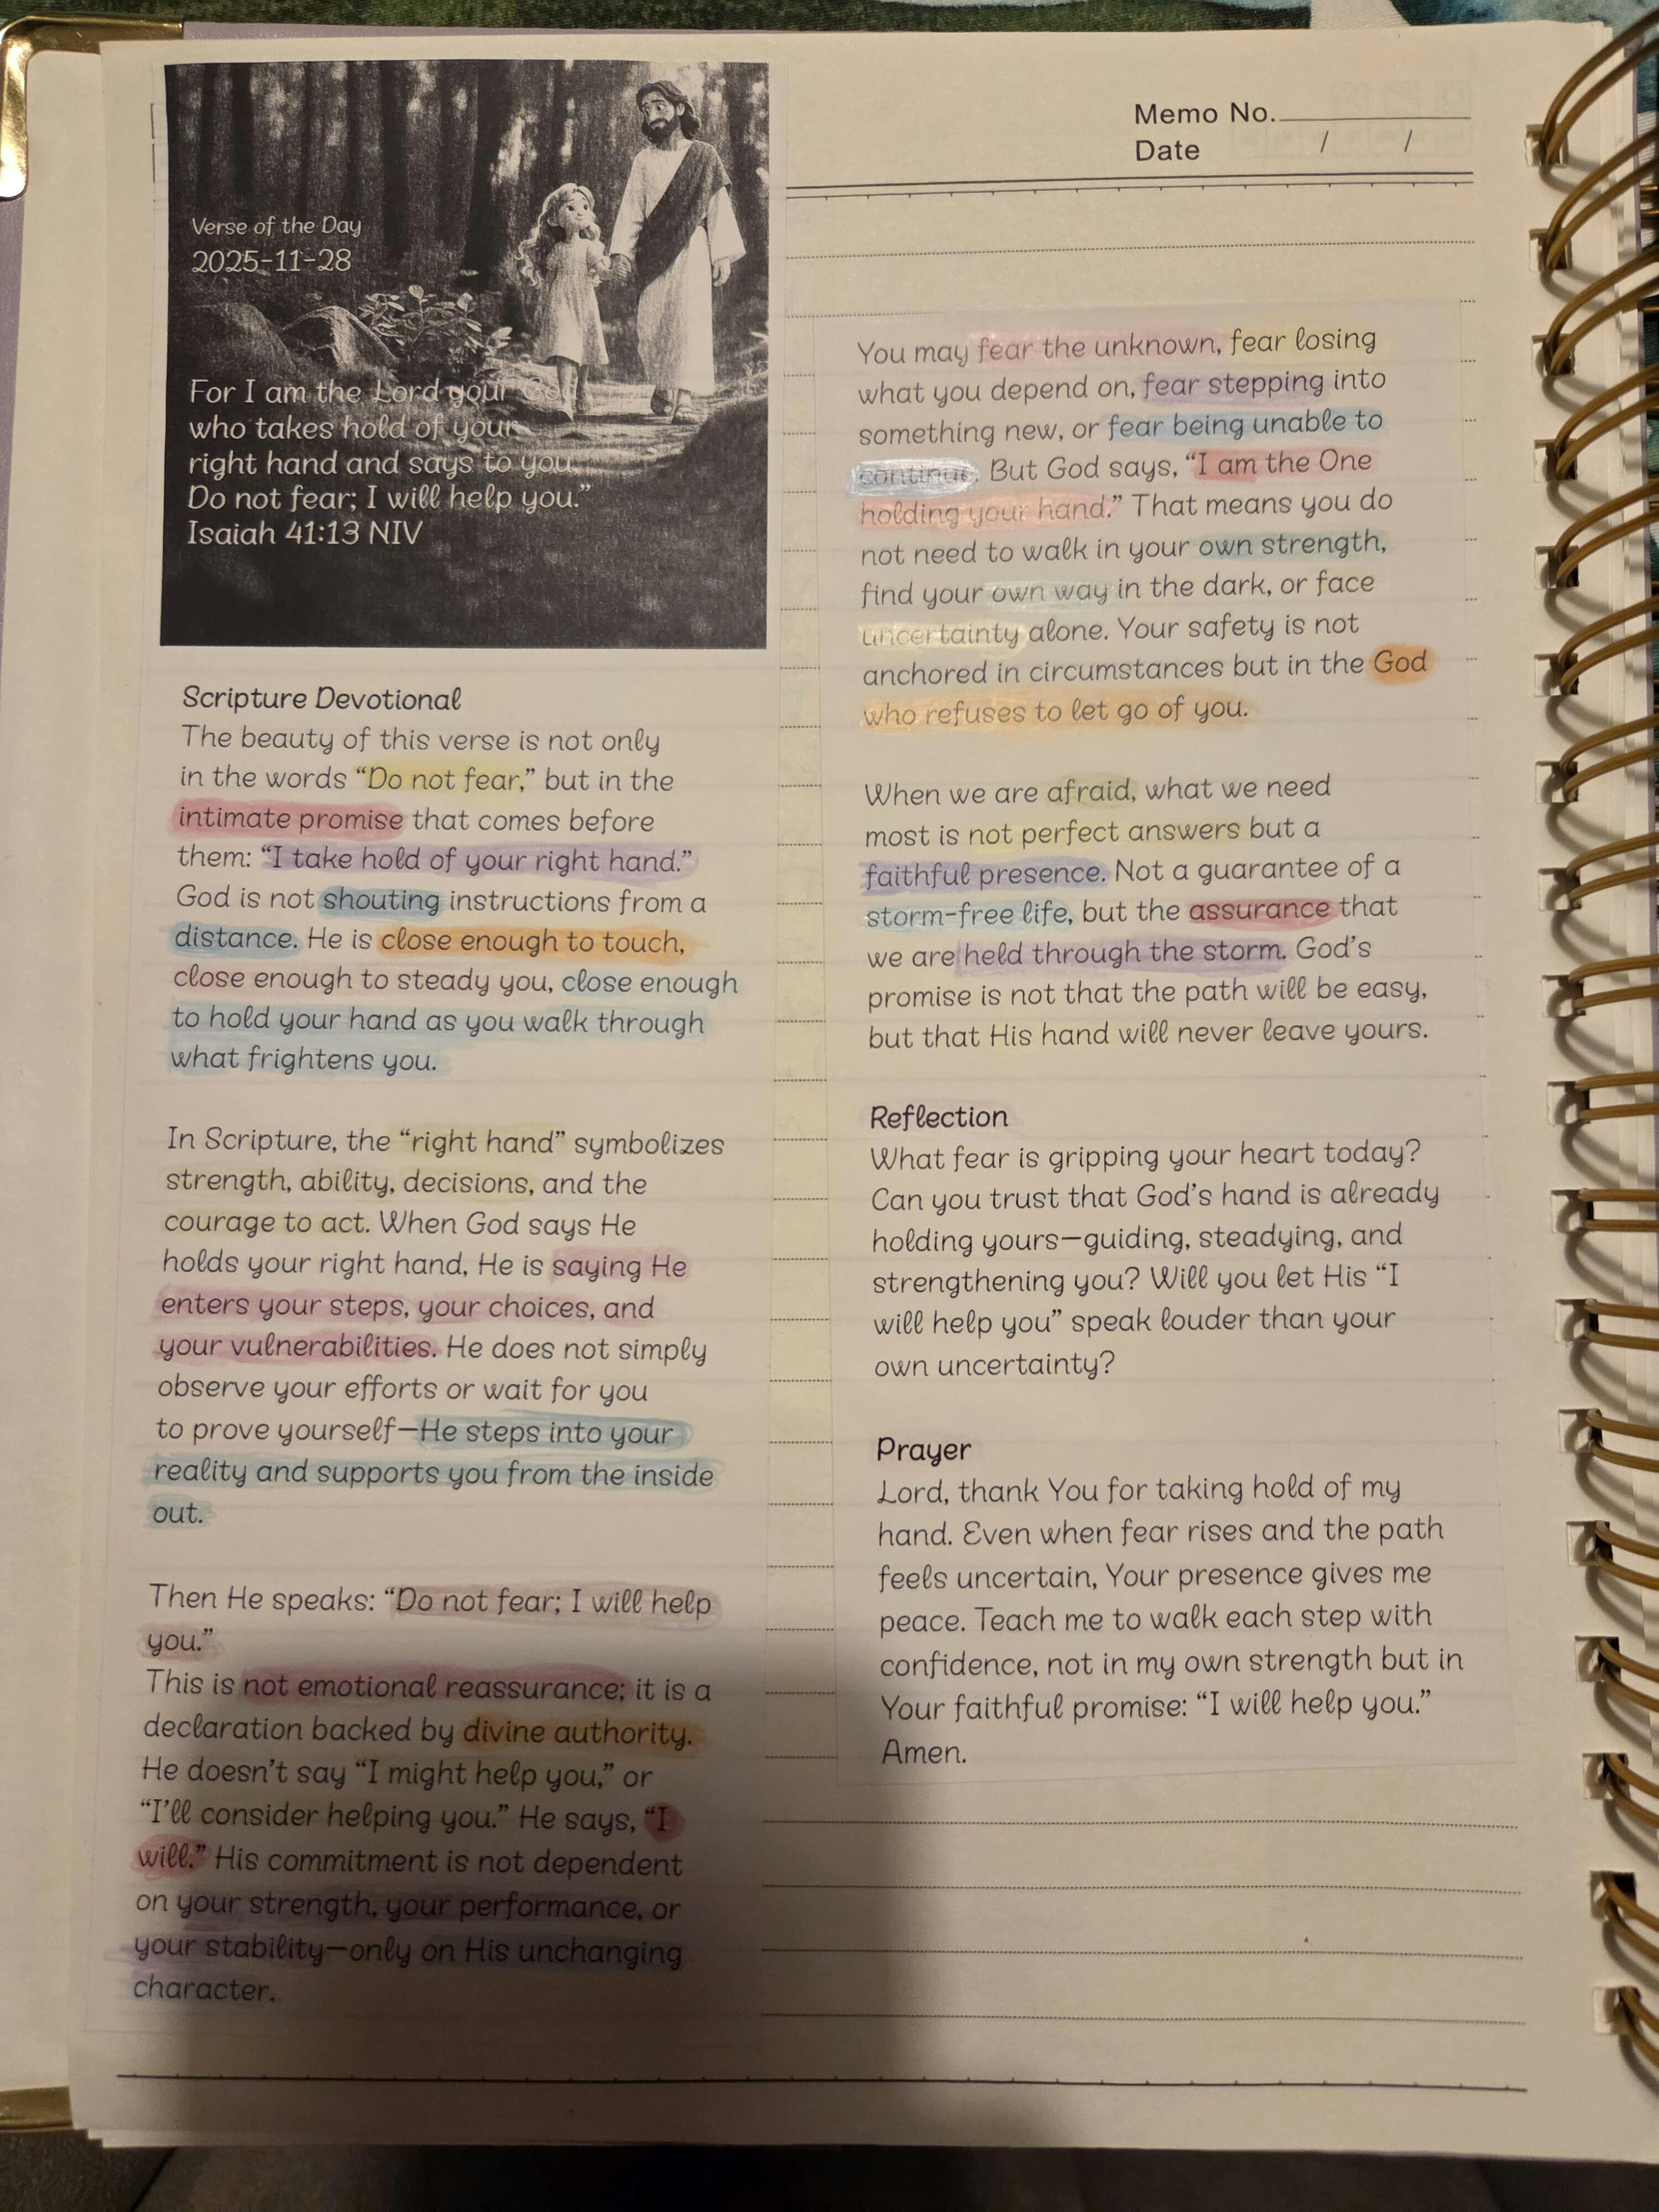 Memo No.
Date / /
Verse of the Day
2025-11-28
For I am the Lord your God
who takes hold of your
right hand and says to you,
Do not fear; I will help you.”
Isaiah 41:13 NIV
Scripture Devotional
The beauty of this verse is not only
in the words “Do not fear,” but in the
intimate promise that comes before
them: “I take hold of your right hand.”
God is not shouting instructions from a
distance. He is close enough to touch,
close enough to steady you, close enough
to hold your hand as you walk through
what frightens you.
In Scripture, the “right hand” symbolizes
strength, ability, decisions, and the
courage to act. When God says He
holds your right hand, He is saying He
enters your steps, your choices, and
your vulnerabilities. He does not simply
observe your efforts or wait for you
to prove yourself—He steps into your
reality and supports you from the inside
out.
Then He speaks: “Do not fear; I will help
you.”
This is not emotional reassurance; it is a
declaration backed by divine authority.
He doesn’t say “I might help you,” or
“I’ll consider helping you.” He says, “I
will.” His commitment is not dependent
on your strength, your performance, or
your stability—only on His unchanging
character.
You may fear the unknown, fear losing
what you depend on, fear stepping into
something new, or fear being unable to
continue. But God says, “I am the One
holding your hand.” That means you do
not need to walk in your own strength,
find your own way in the dark, or face
uncertainty alone. Your safety is not
anchored in circumstances but in the God
who refuses to let go of you.
When we are afraid, what we need
most is not perfect answers but a
faithful presence. Not a guarantee of a
storm-free life, but the assurance that
we are held through the storm. God’s
promise is not that the path will be easy,
but that His hand will never leave yours.
Reflection
What fear is gripping your heart today?
Can you trust that God’s hand is already
holding yours—guiding, steadying, and
strengthening you? Will you let His “I
will help you” speak louder than your
own uncertainty?
Prayer
Lord, thank You for taking hold of my
hand. Even when fear rises and the path
feels uncertain, Your presence gives me
peace. Teach me to walk each step with
confidence, not in my own strength but in
Your faithful promise: “I will help you.”
Amen.